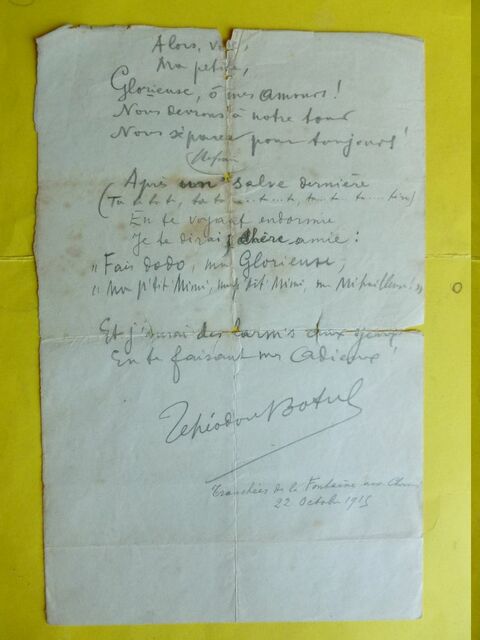 Alors, vois,
Ma petite,
Glorieuse, ô mes amours !
Nous devrons à notre tour
Nous séparer pour toujours !
Refrain
Après un' salve dernière
(Ta ta ta, ta ta ... ta ... ta, ta ... ta ... ta ...)
En te voyant endormie
Je te dirai, chère amie :
"Fais dodo, ma Glorieuse,
"Ma p'tit' Mimi, ma p'tit' Mimi, ma Mitrailleuse ! "
Et j'aurai des larm's aux yeux
En te faisant mes Adieux !
Théodore Botrel
Tranchées de la Fontaine aux
22 Octobre 1915